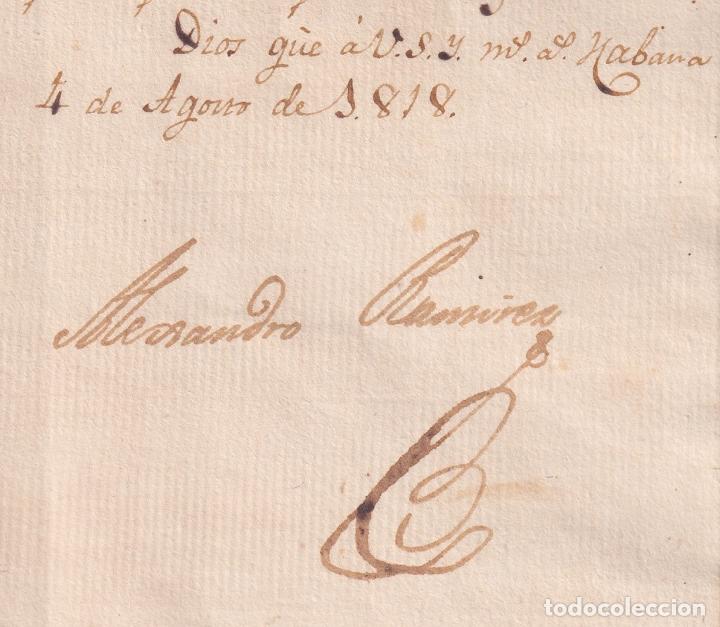 Dios gũe á V.S.Y. mˢ. aˢ. Habana
4 de Agosto de 1.818.
Alexandro Ramirez
todocoleccion.net